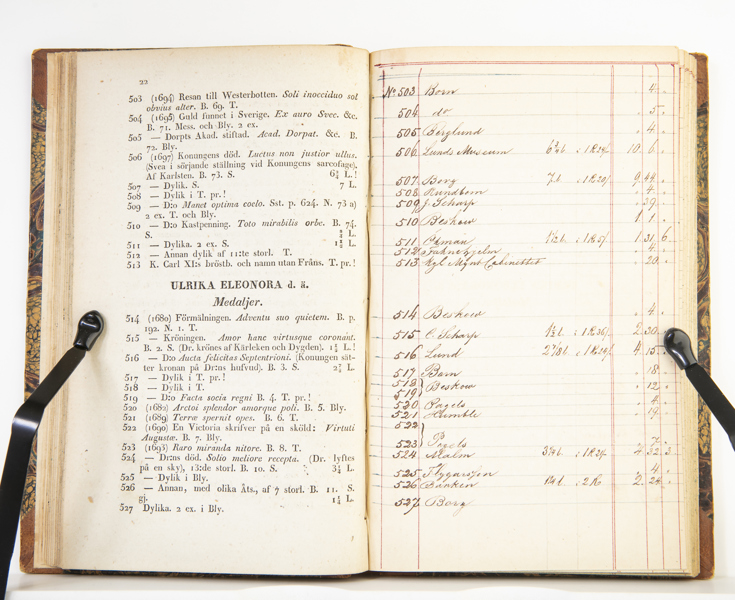 22
503 (1694) Resan till Westerbotten. Soli inocciduo sol
obvius alter. B. 69. T.
504 (1695) Guld funnet i Sverige. Ex auro Svec. &c.
B. 71. Mess. och Bly. 2 ex.
505 — Dorpts Akad. stiftad. Acad. Dorpat. &c. B.
72. Bly.
506 (1697) Konungens död. Luctus non justior ullus.
(Svea i sörjande ställning vid Konungens sarcofage).
Af Karlsten. B. 73. S. 6¾ L.!
507 — Dylik. S. 7 L.
508 — Dylik i T. pr.!
509 — D:o Manet optima coelo. Sst. p. 624. N. 73 a)
2 ex. T. och Bly.
510 — D:o Kastpenning. Toto mirabilis orbe. B. 74.
S. L.
511 — Dylika. 2 ex. S. L.
512 — Annan dylik af 11:te storl. T.
513 K. Carl XI:s bröstb. och namn utan Fråns. T. pr.!
ULRIKA ELEONORA d. ä.
Medaljer.
514 (1680) Förmälningen. Adventu suo quietem. B. p.
192. N. 1. T.
515 — Kröningen. Amor hanc virtusque coronant.
B. 2. S. (Dr. krönes af Kärleken och Dygden). L.!
516 — D:o Aucta felicitas Septentrioni. (Konungen sät-
ter kronan på Dr:ns hufvud). B. 3. S. L.
517 — Dylik i T. pr.!
518 — Dylik i T.
519 — D:o Facta socia regni B. 4. T. pr.!
520 (1682) Arctoi splendor amorque poli. B. 5. Bly.
521 (1689) Terræ spernit opes. B. 6. T.
522 (1690) En Victoria skrifver på en sköld: Virtuti
Augustæ. B. 7. Bly.
523 (1693) Raro miranda nitore. B. 8. T.
524 — Dr:ns död. Solio meliore recepta. (Dr. lyftes
på en sky), 13:de storl. B. 10. S. L.
525 — Dylik i Bly.
526 — Annan, med olika Åts., af 7 storl. B. 11. S.
gj. L.
527 Dylika. 2 ex. i Bly.
No 503 Bom 4.
504 do 5.
505 Berglund 4.
506 Lunds Museum 10. 6.
507 Borg 9.44.
508 Rundbom 4.
509 J. Scharp 39.
510 Beskow 1 1.
511 1.31. 6
512 4.
513 Kgl Mynt Cabinettet 20.
514 Beskow 4.
515 C. Scharp 2.30.
516 Lund 4.15.
517 Bom 18.
518
519 } Beskow 12.
520 Pagels 4.
521 Humble 19.
522
523 } Pagels 7.
524 Malm 4.32.3
525 Flygarsson 4.
526 Buncken 2.24.
527 Borg